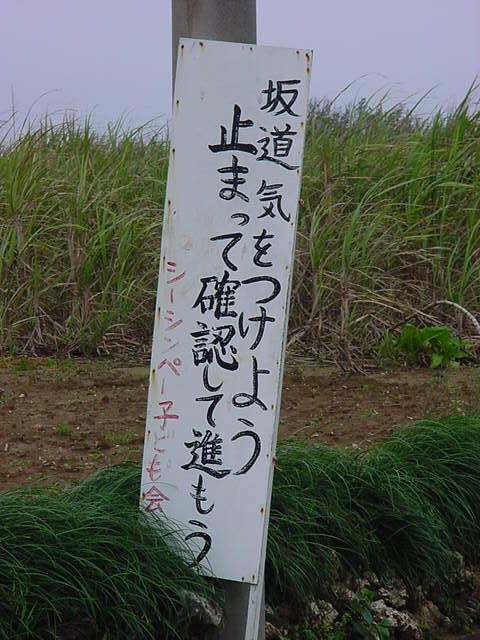 坂道気をつけよう
止まって確認して進もう
シーシンペー子ども会